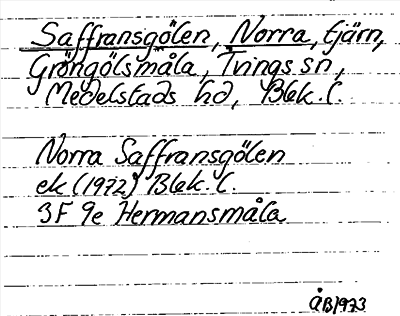 Saffransgölen, Norra, tjärn,
Gröngölsmåla, Tvings sn,
Medelstads hd, Blek. l.
Norra Saffransgölen
ek (1972) Blek. l.
3F 9e Hermansmåla
ÅB 1973